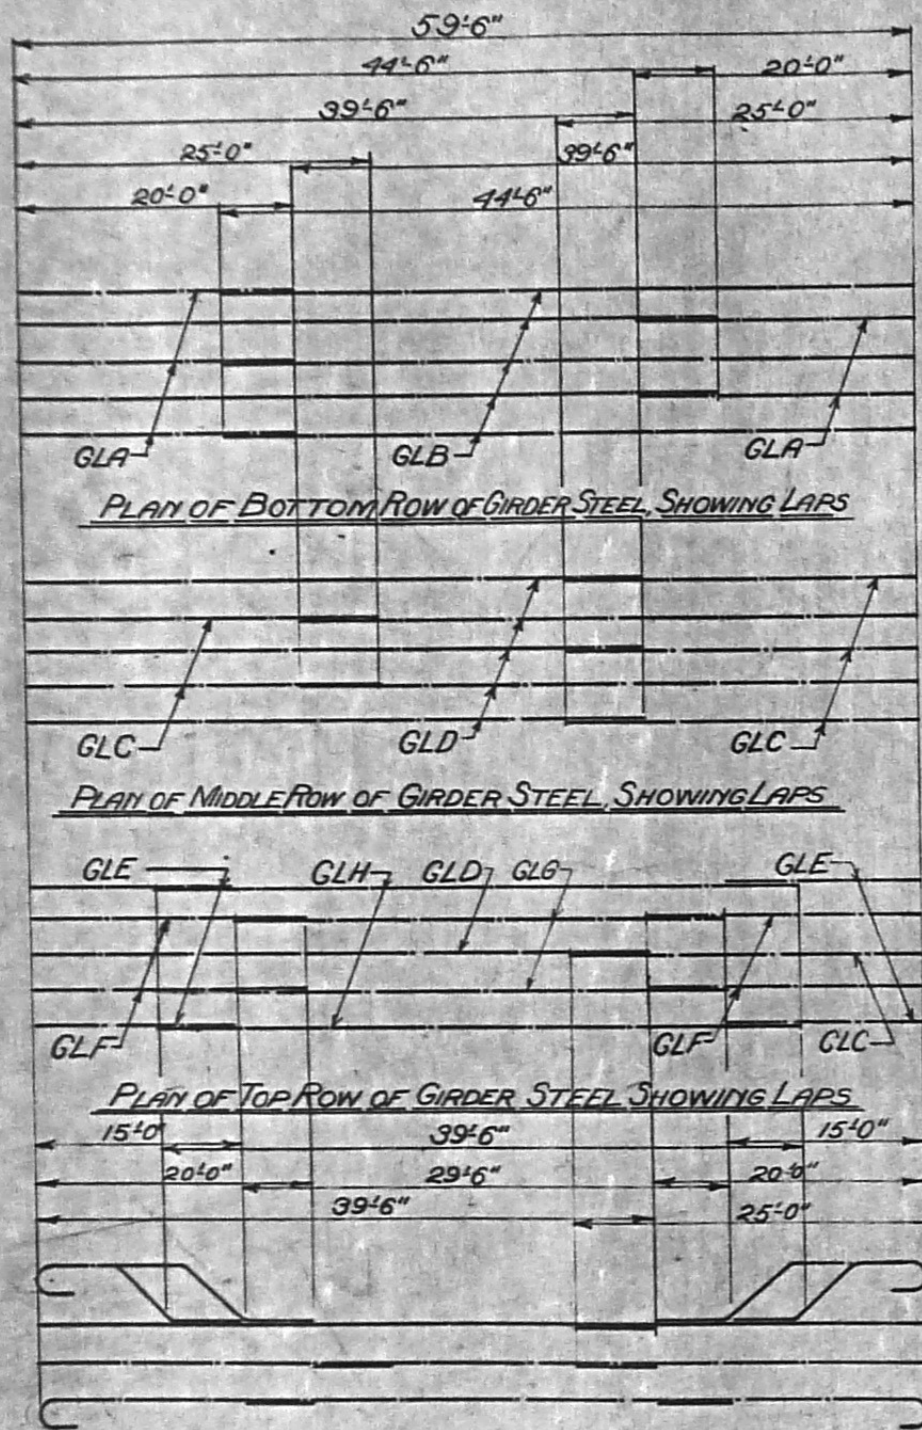 59'-6"
44'-6" 20'-0"
39'-6" 25'-0"
25'-0" 39'-6"
20'-0" 44'-6"
GLA GLB GLA
PLAN OF BOTTOM ROW OF GIRDER STEEL, SHOWING LAPS
GLC GLD GLC
PLAN OF MIDDLE ROW OF GIRDER STEEL, SHOWING LAPS
GLE GLH GLD GLG GLE
GLF GLF GLC
PLAN OF TOP ROW OF GIRDER STEEL SHOWING LAPS
15'-0" 39'-6" 15'-0"
20'-0" 29'-6" 20'-0"
39'-6" 25'-0"